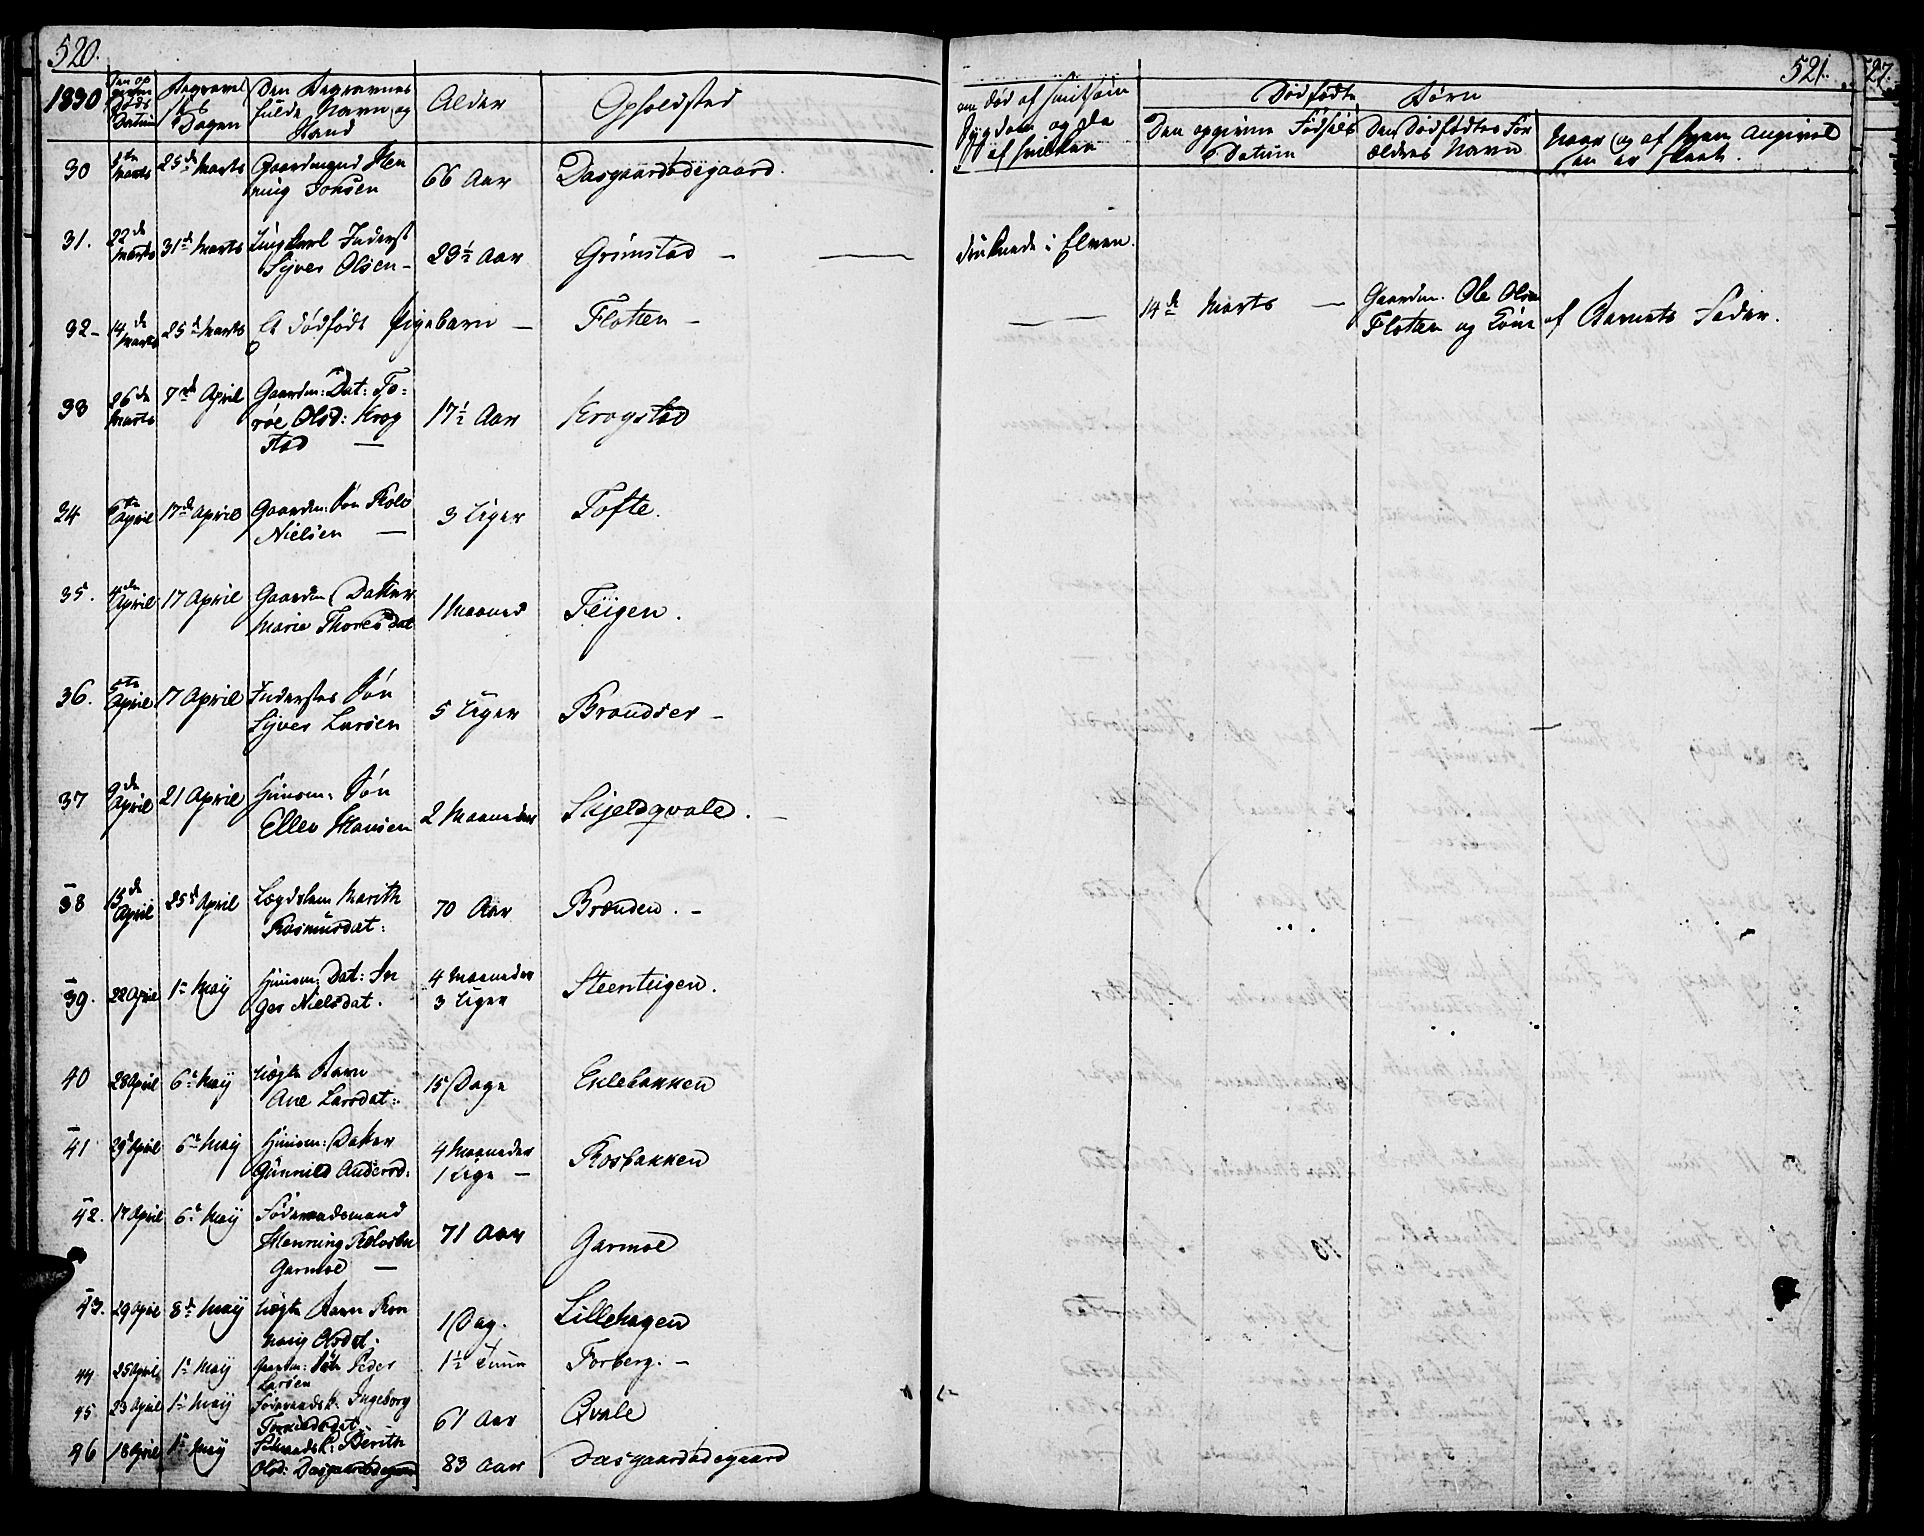 520.
1830
Den op
givne
Døds
Datum
Begravel
ses
Dagen
Den Begravnes
fulde Navn og
Stand
Alder
Opholdsted
30 5te Marts 25de Marts Gaardmand Hen
ning Jonsen 66 Aar Dasgaardødegaard.
31. 22de Marts 31de Marts Ungkarl Inderst
Syver Olsen - 23½ Aar Grimstad -
32 - 14de Marts 25de Marts Et dødfødt Pigebarn - Flotten -
33 26de Marts 7de April Gaardm: Dat: To-
røe Olsd: Krog
stad - 17½ Aar Krogstad
34 6te April 17de April Gaardm: Søn Rolv
Nielsen - 3 Uger Tofte.
35. 4de April 17 April Gaardm Datter
Marie Thoresdat 1 Maaned Teigen.
36. 5te April 17 April Inderstes Søn
Syver Larsen 5 Uger Brandser -
37 9de April 21 April Huusm: Søn
Ellev Hansen 2 Maaneder Skjeldqvale. -
38 13de April 25de April Lægdslem Marith
Rasmusdat: 70 Aar Brænden. -
39. 22 April 1te May Huusm: Dat: In
ger Nielsdat. 4 Maaneder
3 Uger Steenteigen.
40 28 April 6te May Uægte Barn
Ane Larsdat: 15 Dage Eklebakken
41 29 April 6te May Huusm: Datter
Gunnild Andersd: 4 Maaneder
1 Uge - Rosbakken
42. 17 April 6te May Føderaadsmand
Henning Rolvsen
Garmoe - 71 Aar Garmoe
43. 29 April 8de May Uægte Barn Ron
naug Olsdat. 1 Dag. Lillehagen
44 25 April 1te May Gaardm: Søn Peder
Larsen 1½ Time Forberg. -
45 23 April 1te May Føderaadsk. Ingeborg
Torkildsdat. 61 Aar Qvale
46 18 April 1te May Føderaadsk: Berith
Olsd: Dasgaardødegaard 83 Aar Dasgaardødegaard
521.
om død af smitsom
Sygdom og da
af hvilken
Dødfødte Børn
Den opgivne Fødsels
Datum
Den Dødfødtes For
ældres Navn
Naar og af hvem Angivel
sen er skeet.
druknede i Elven.
14de Marts - Gaardm. Ole Olsen
Flotten og Kone af Barnets Fader.
527.